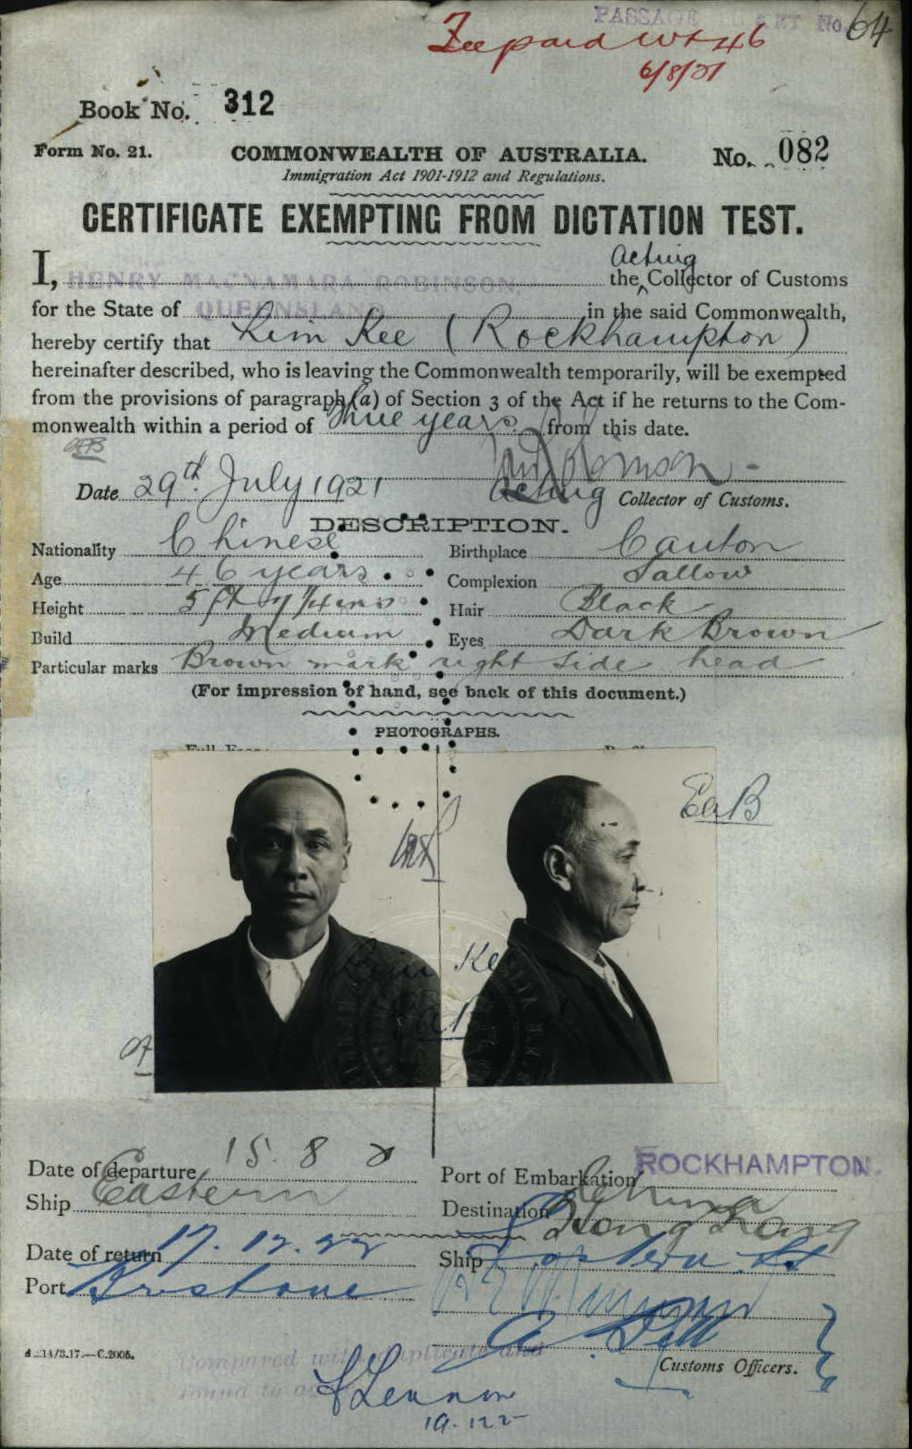 PASSAGE TICKET No. 64
Fee paid
6/8/21
Book No. 312
Form No. 21.
COMMONWEALTH OF AUSTRALIA.
No. 082
Immigration Act 1901-1912 and Regulations.
CERTIFICATE EXEMPTING FROM DICTATION TEST.
Acting
I, HENRY MACNAMARA ROBINSON. the Collector of Customs
for the State of QUEENSLAND in the said Commonwealth,
hereby certify that Kim Kee (Rockhampton)
hereinafter described, who is leaving the Commonwealth temporarily, will be exempted
from the provisions of paragraph (a) of Section 3 of the Act if he returns to the Com-
monwealth within a period of three years from this date.
Date 29th July 1921
Acting Collector of Customs.
DESCRIPTION.
Nationality Chinese Birthplace Canton
Age 46 years Complexion Sallow
Height 5 ft Hair Black
Build Medium Eyes Dark Brown
Particular marks Brown mark right side head
(For impression of hand, see back of this document.)
PHOTOGRAPHS.
EaB
Kim Kee
Date of departure 15. 8 Port of Embarkation ROCKHAMPTON.
Ship Eastern Destination China
Hong Kong
Date of return 17.12.22 Ship Eastern
Port Brisbane
Customs Officers.
14/3.17.—C.2005.
Compared with duplicate and
found to